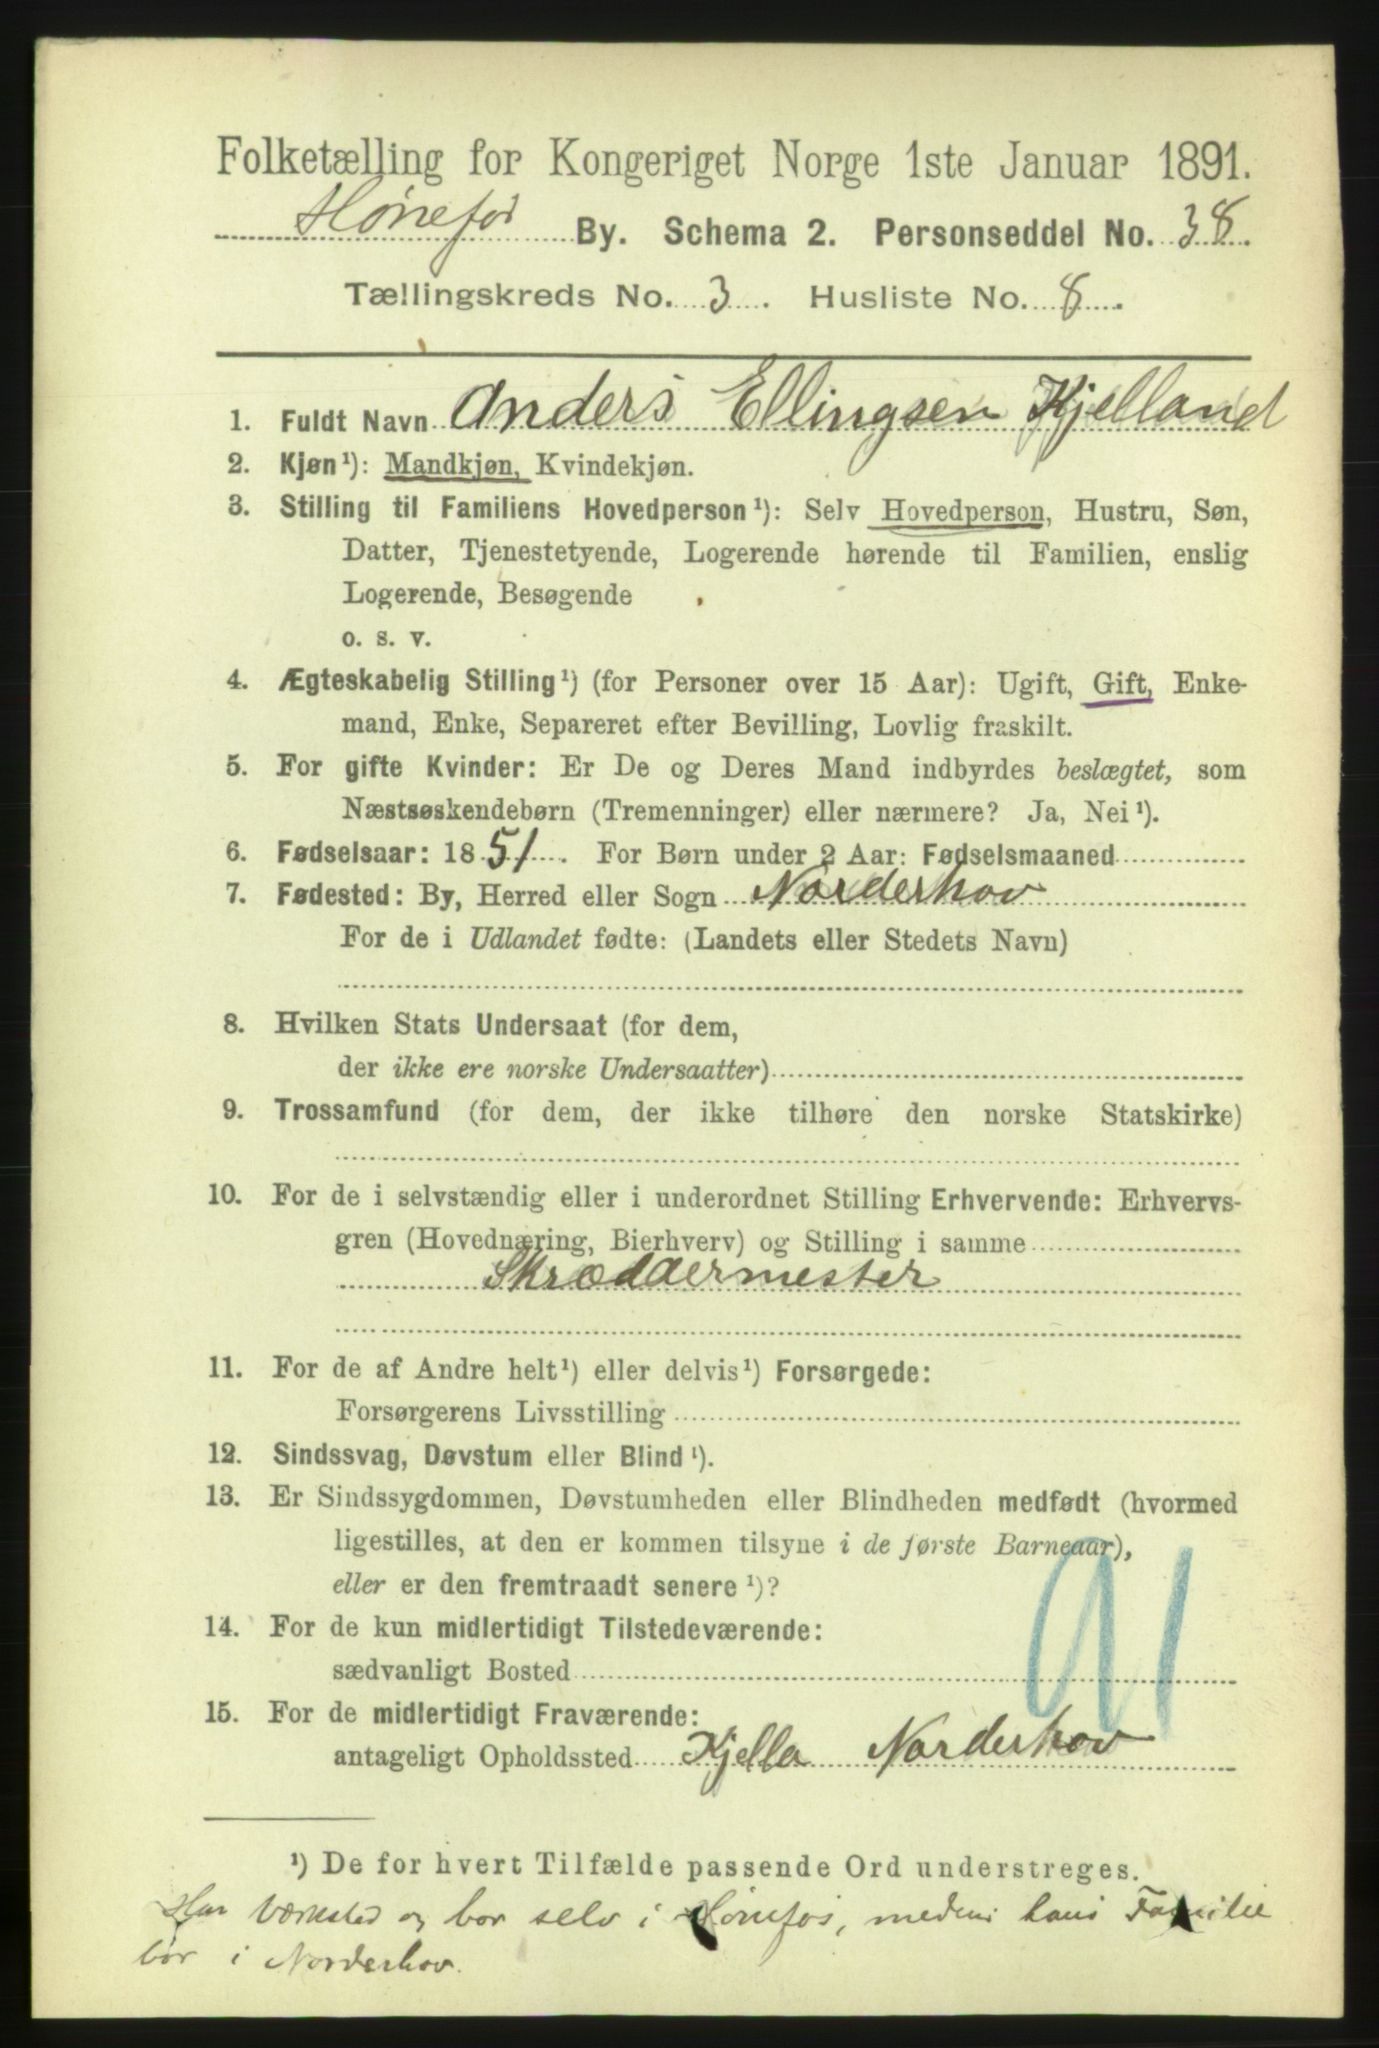 Folketælling for Kongeriget Norge 1ste Januar 1891.
Hønefos By. Schema 2. Personseddel No. 38.
Tællingskreds No. 3. Husliste No. 8.
1. Fuldt Navn Anders Ellingsen Kjelland
2. Kjøn¹): Mandkjøn, Kvindekjøn.
3. Stilling til Familiens Hovedperson¹): Selv Hovedperson, Hustru, Søn,
Datter, Tjenestetyende, Logerende hørende til Familien, enslig
Logerende, Besøgende
o. s. v.
4. Ægteskabelig Stilling¹) (for Personer over 15 Aar): Ugift, Gift, Enke-
mand, Enke, Separeret efter Bevilling, Lovlig fraskilt.
5. For gifte Kvinder: Er De og Deres Mand indbyrdes beslægtet, som
Næstsøskendebørn (Tremenninger) eller nærmere? Ja, Nei¹).
6. Fødselsaar: 1851. For Børn under 2 Aar: Fødselsmaaned
7. Fødested: By, Herred eller Sogn Norderhov
For de i Udlandet fødte: (Landets eller Stedets Navn)
8. Hvilken Stats Undersaat (for dem,
der ikke ere norske Undersaatter)
9. Trossamfund (for dem, der ikke tilhøre den norske Statskirke)
10. For de i selvstændig eller i underordnet Stilling Erhvervende: Erhvervs-
gren (Hovednæring, Bierhverv) og Stilling i samme
Skræddermester
11. For de af Andre helt¹) eller delvis¹) Forsørgede:
Forsørgerens Livsstilling
12. Sindssvag, Døvstum eller Blind¹).
13. Er Sindssygdommen, Døvstumheden eller Blindheden medfødt (hvormed
ligestilles, at den er kommen tilsyne i de første Barneaar),
eller er den fremtraadt senere¹)?
91
14. For de kun midlertidigt Tilstedeværende:
sædvanligt Bosted
15. For de midlertidigt Fraværende:
antageligt Opholdssted Kjella Norderhov
¹) De for hvert Tilfælde passende Ord understreges.
Har Værksted og bor selv i Hønefos, medens hans Familie
bor i Norderhov.